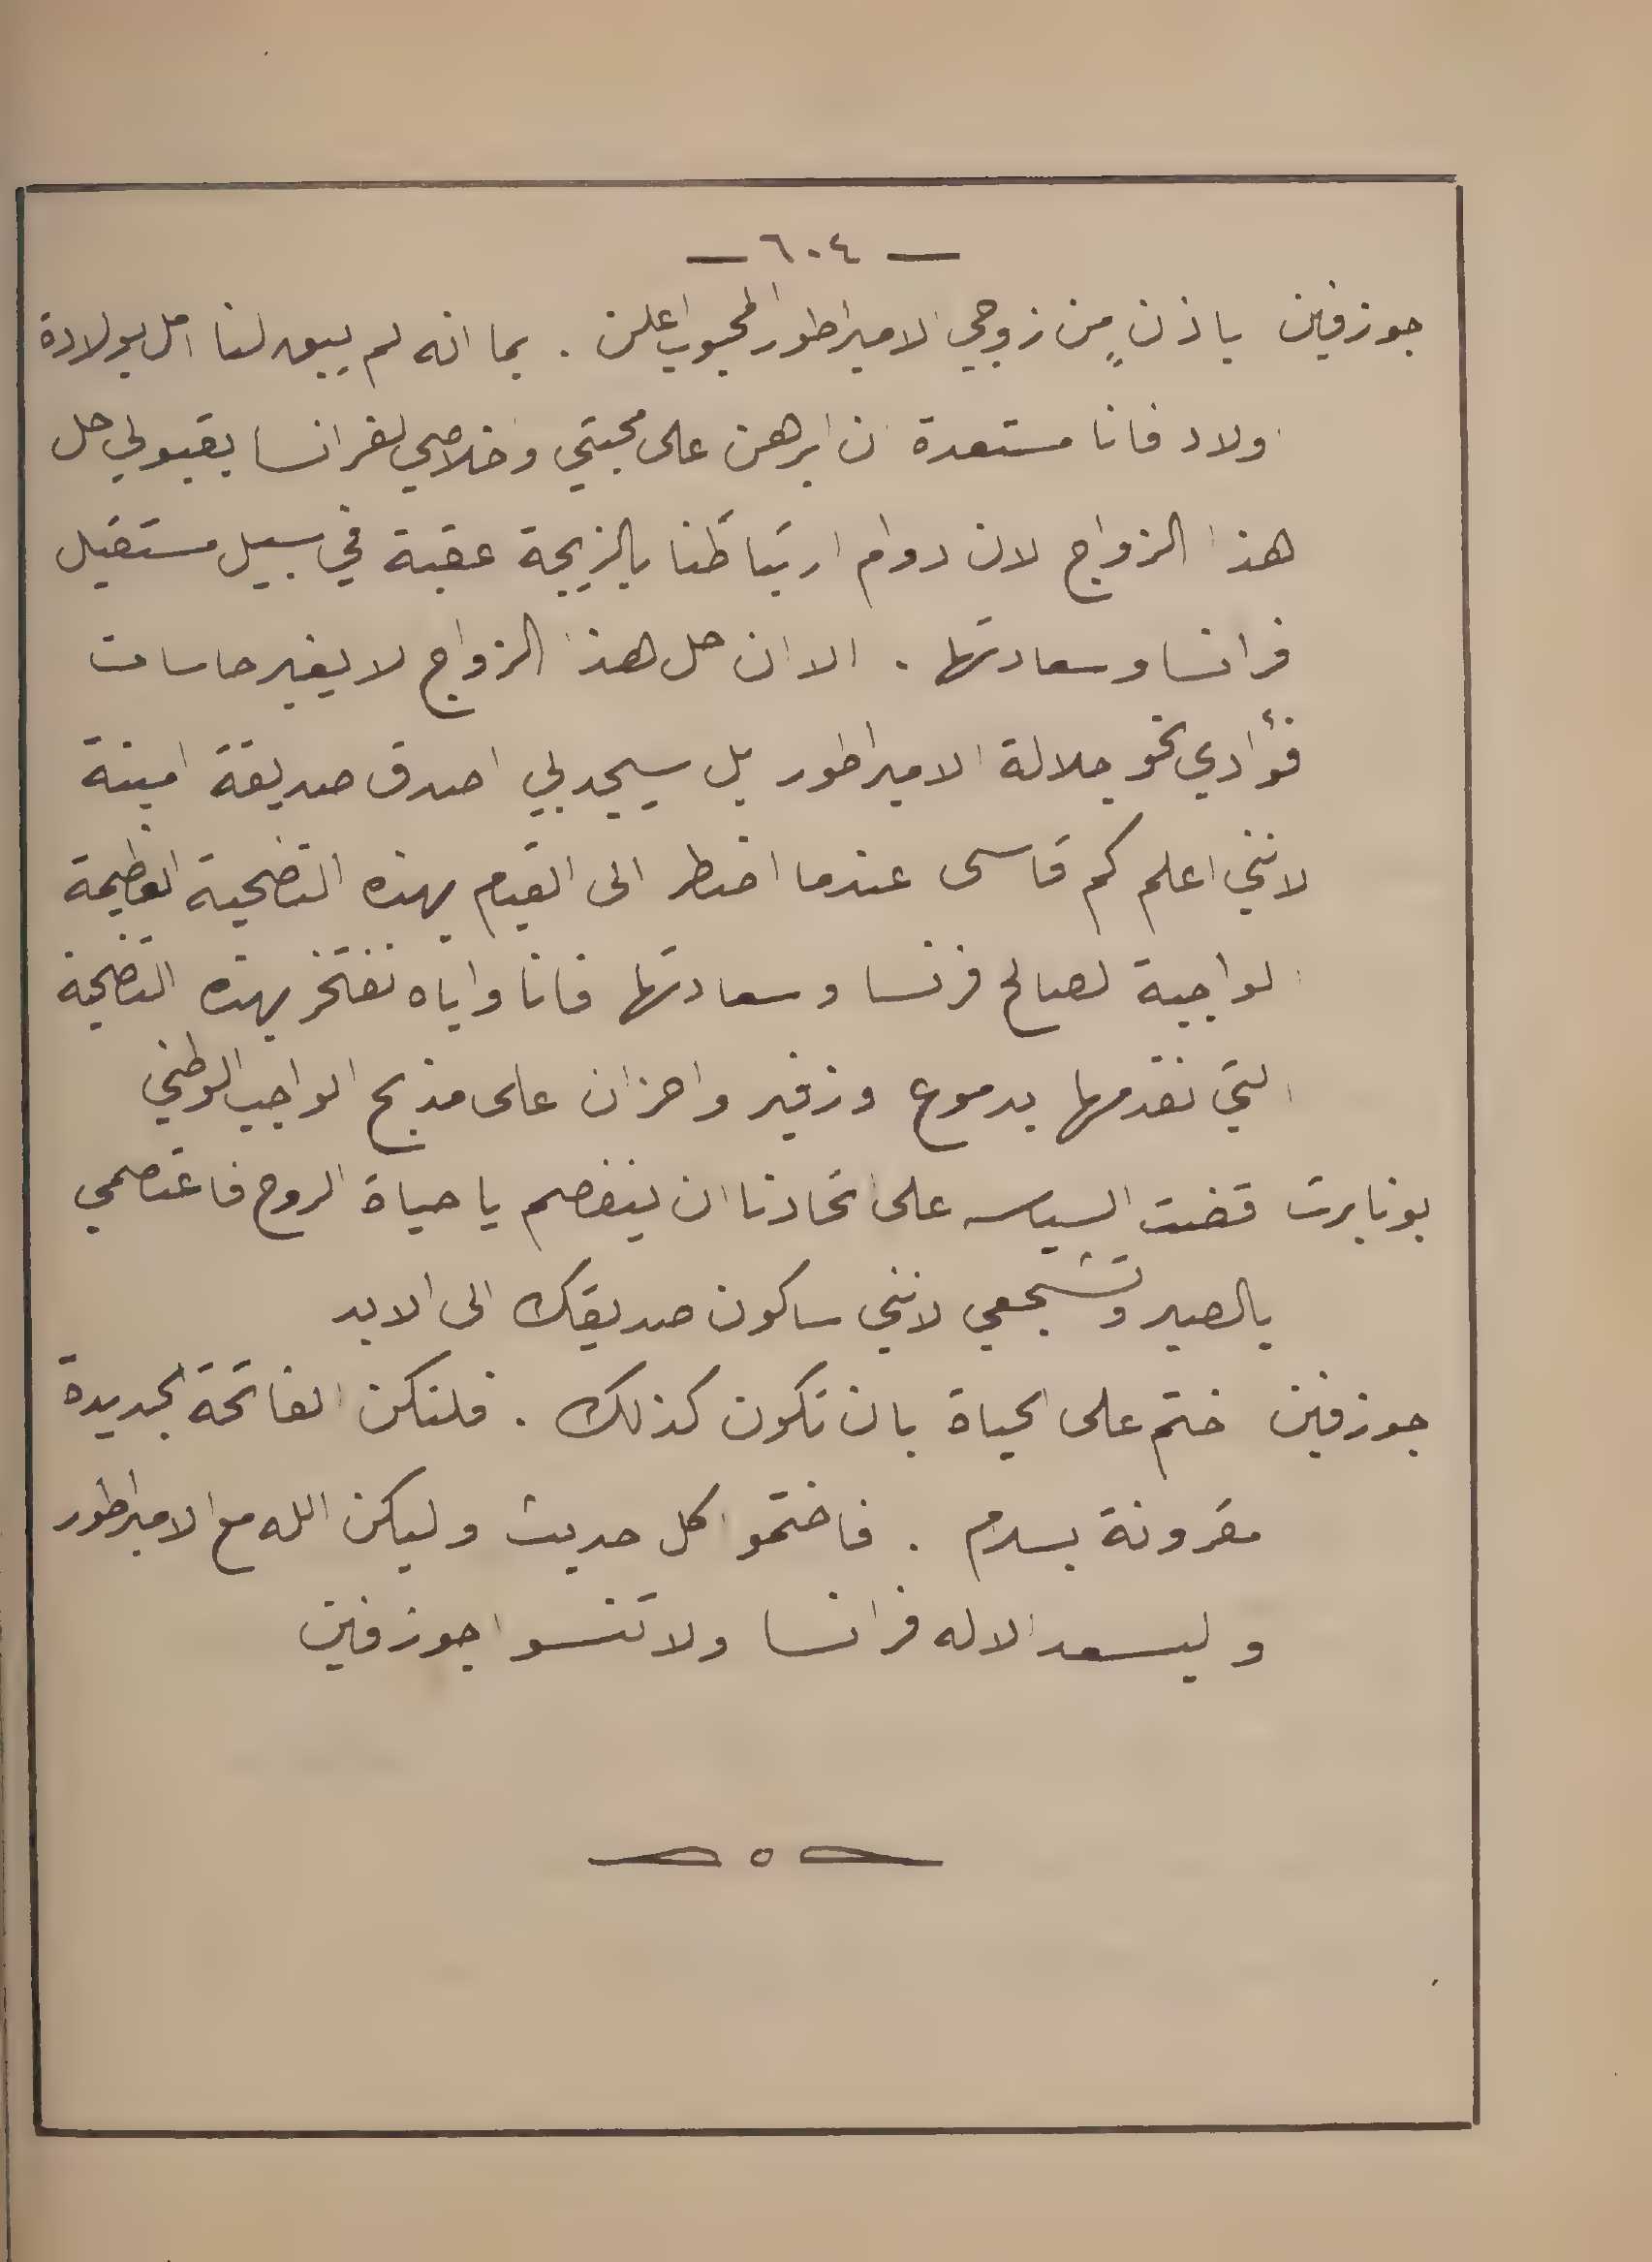 — ٦٠٤ —
جوزفين باذنٍ من زوجي الامبراطور المحبوب اعلن . بما انه لم يبق لنا امل بولادة
اولاد فانا مستعدة ان ابرهن على محبتي واخلاصي لفرانسا بقبولي حل
هذا الزواج لان دوام ارتباطنا بالزيجة عقبة في سبيل مستقبل
فرانسا وسعادتها . الا ان حل هذا الزواج لا يغير حاسات
فؤادي نحو جلالة الامبراطور بل سيجد بي اصدق صديقة امينة
لانني اعلم كم قاسى عندما اضطر الى القيام بهذه التضحية العظيمة
الواجبة لصالح فرنسا وسعادتها فانا واياه نفتخر بهذه التضحية
التي نقدمها بدموع وزفير واحزان على مذبح الواجب الوطني
بونابرت قضت السياسه على اتحادنا ان ينفصم يا حياة الروح فاعتصمي
بالصبر وتشجعي لانني ساكون صديقك الى الابد
جوزفين ختم على الحياة بان تكون كذلك . فلتكن الفاتحة الجديدة
مقرونة بسلام . فاختموا كل حديث وليكن الله مع الامبراطور
وليسعد الاله فرانسا ولا تنسوا جوزفين